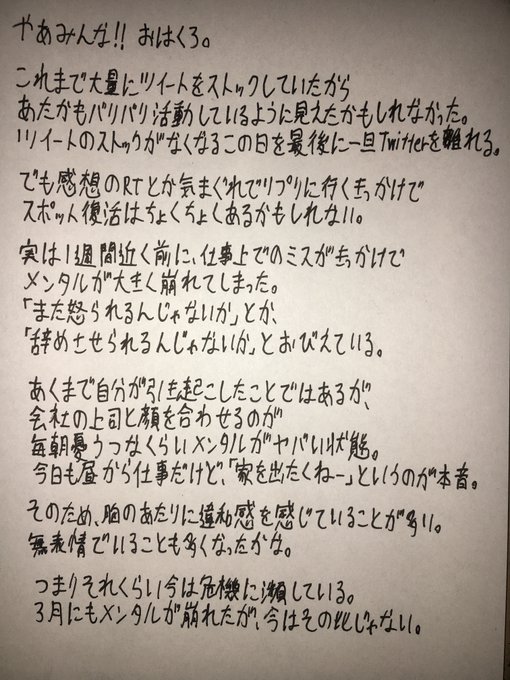 やあみんな!! おはくろ。
これまで大量にツイートをストックしていたから
あたかもバリバリ活動しているように見えたかもしれなかった。
ツイートのストックがなくなるこの日を最後に一旦Twitterを離れる。
でも感想のRTとか気まぐれでリプリに行くきっかけで
スポット復活はちょくちょくあるかもしれない。
実は1週間近く前に、仕事上でのミスがきっかけで
メンタルが大きく崩れてしまった。
「また怒られるんじゃないか」とか、
「辞めさせられるんじゃないか」とおびえている。
あくまで自分が引き起こしたことではあるが、
会社の上司と顔を合わせるのが
毎朝憂うつなくらいメンタルがヤバい状態。
今日も昼から仕事だけど、「家を出たくねー」というのが本音。
そのため、胸のあたりに違和感を感じていることが多い。
無表情でいることも多くなったかな。
つまりそれくらい今は危機に瀕している。
3月にもメンタルが崩れたが、今はその比じゃない。